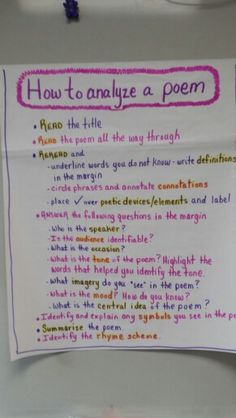 How to analyze a poem
• READ the title
• READ the poem all the way through
• REREAD and
- underline words you do not know - write definitions
in the margin
- circle phrases and annotate connotations
- place ✓ over poetic devices/elements and label
• ANSWER the following questions in the margin
- Who is the speaker?
- Is the audience identifiable?
- What is the occasion?
- What is the tone of the poem? Highlight the
words that helped you identify the tone.
- What imagery do you "see" in the poem?
- What is the mood? How do you know?
- What is the central idea of the poem?
• Identify and explain any symbols you see in the po
• Summarise the poem.
• Identify the rhyme scheme.